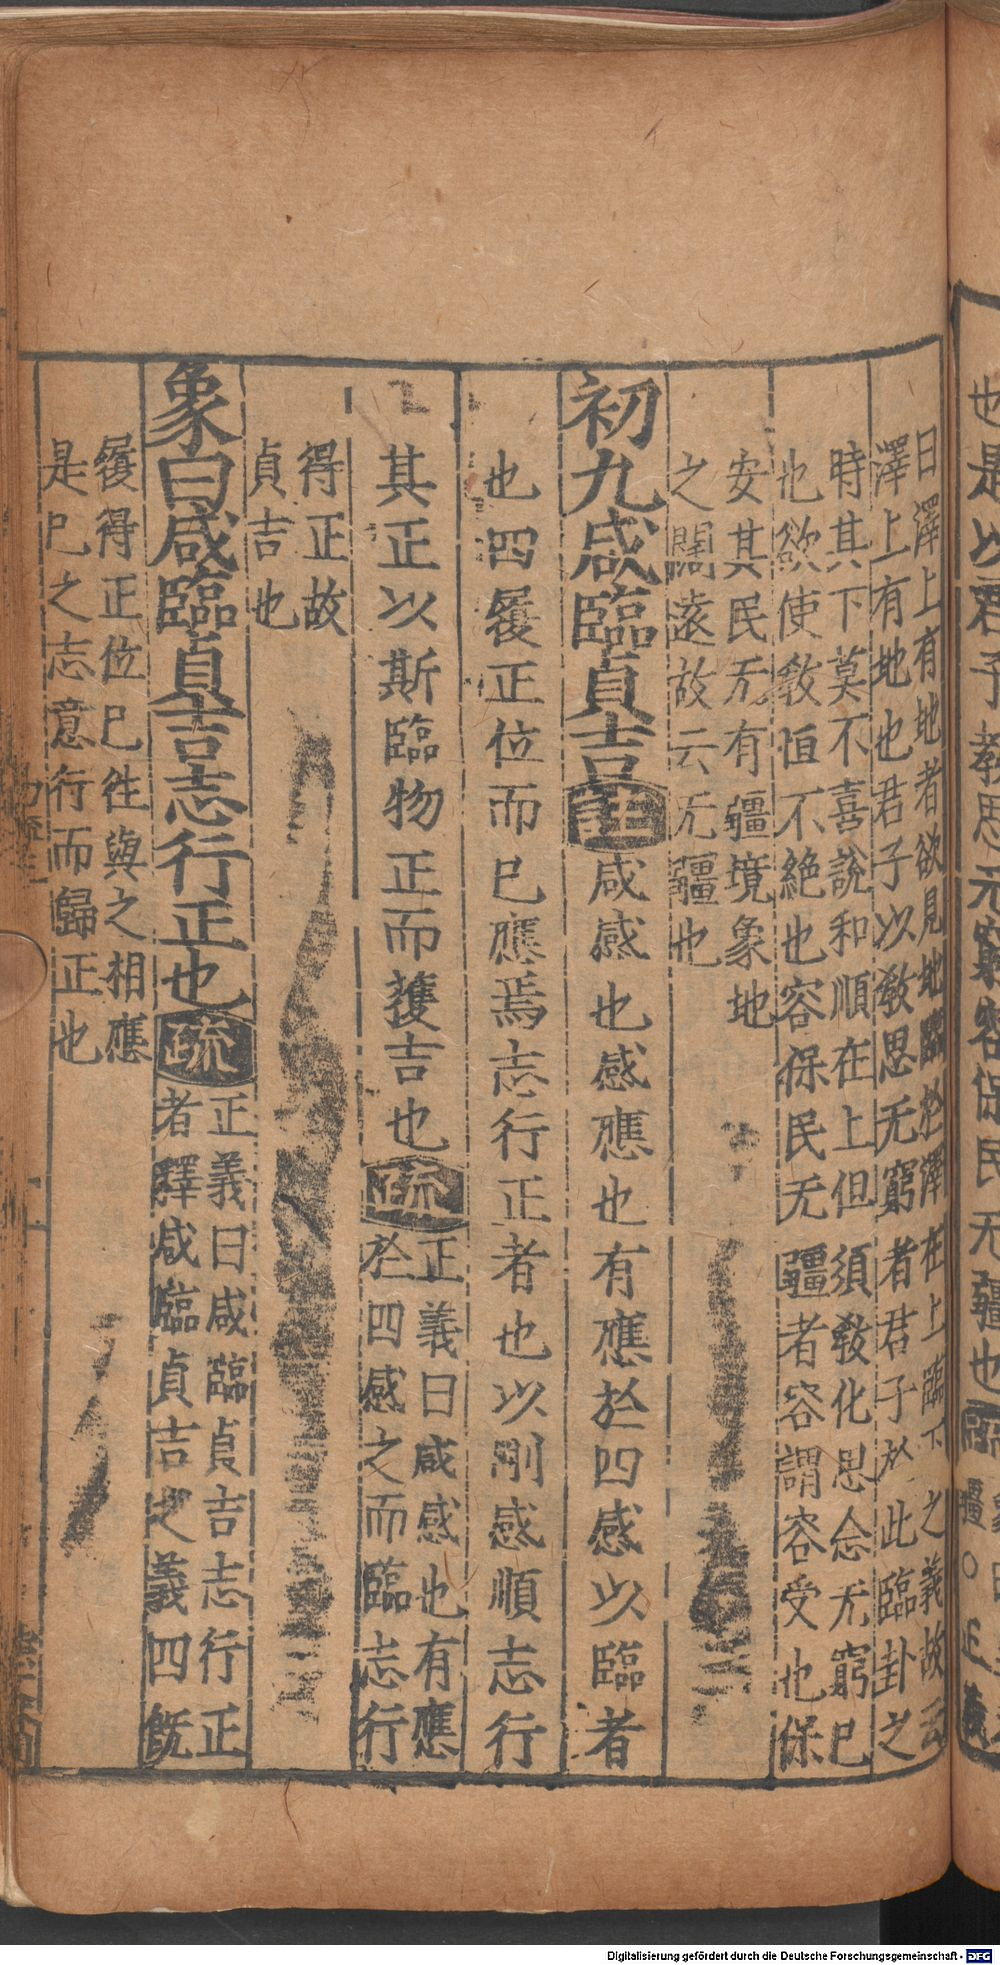 也是以君子教思无窮容保民无疆也
曰澤上有地者欲見地臨於澤在上臨下之義故云
澤上有地也君子以敎思无窮者君子於此臨卦之
時其下莫不喜說和順在上但須敎化思念无窮已
也欲使敎恒不絶也容保民无疆者容謂容受也保
安其民无有疆境象地
之闊遠故云无疆也
初九咸臨貞吉註咸感也感應也有應於四感以臨者
也四履正位而已應焉志行正者也以剛感順志行
其正以斯臨物正而獲吉也疏
正義曰咸感也有應
於四感之而臨志行
得正故
貞吉也
象曰咸臨貞吉志行正也疏
正義曰咸臨貞吉志行正
者釋咸臨貞吉之義四旣
履得正位已往與之相應
是已之志意行而歸正也
Digitalisierung gefördert durch die Deutsche Forschungsgemeinschaft - DFG